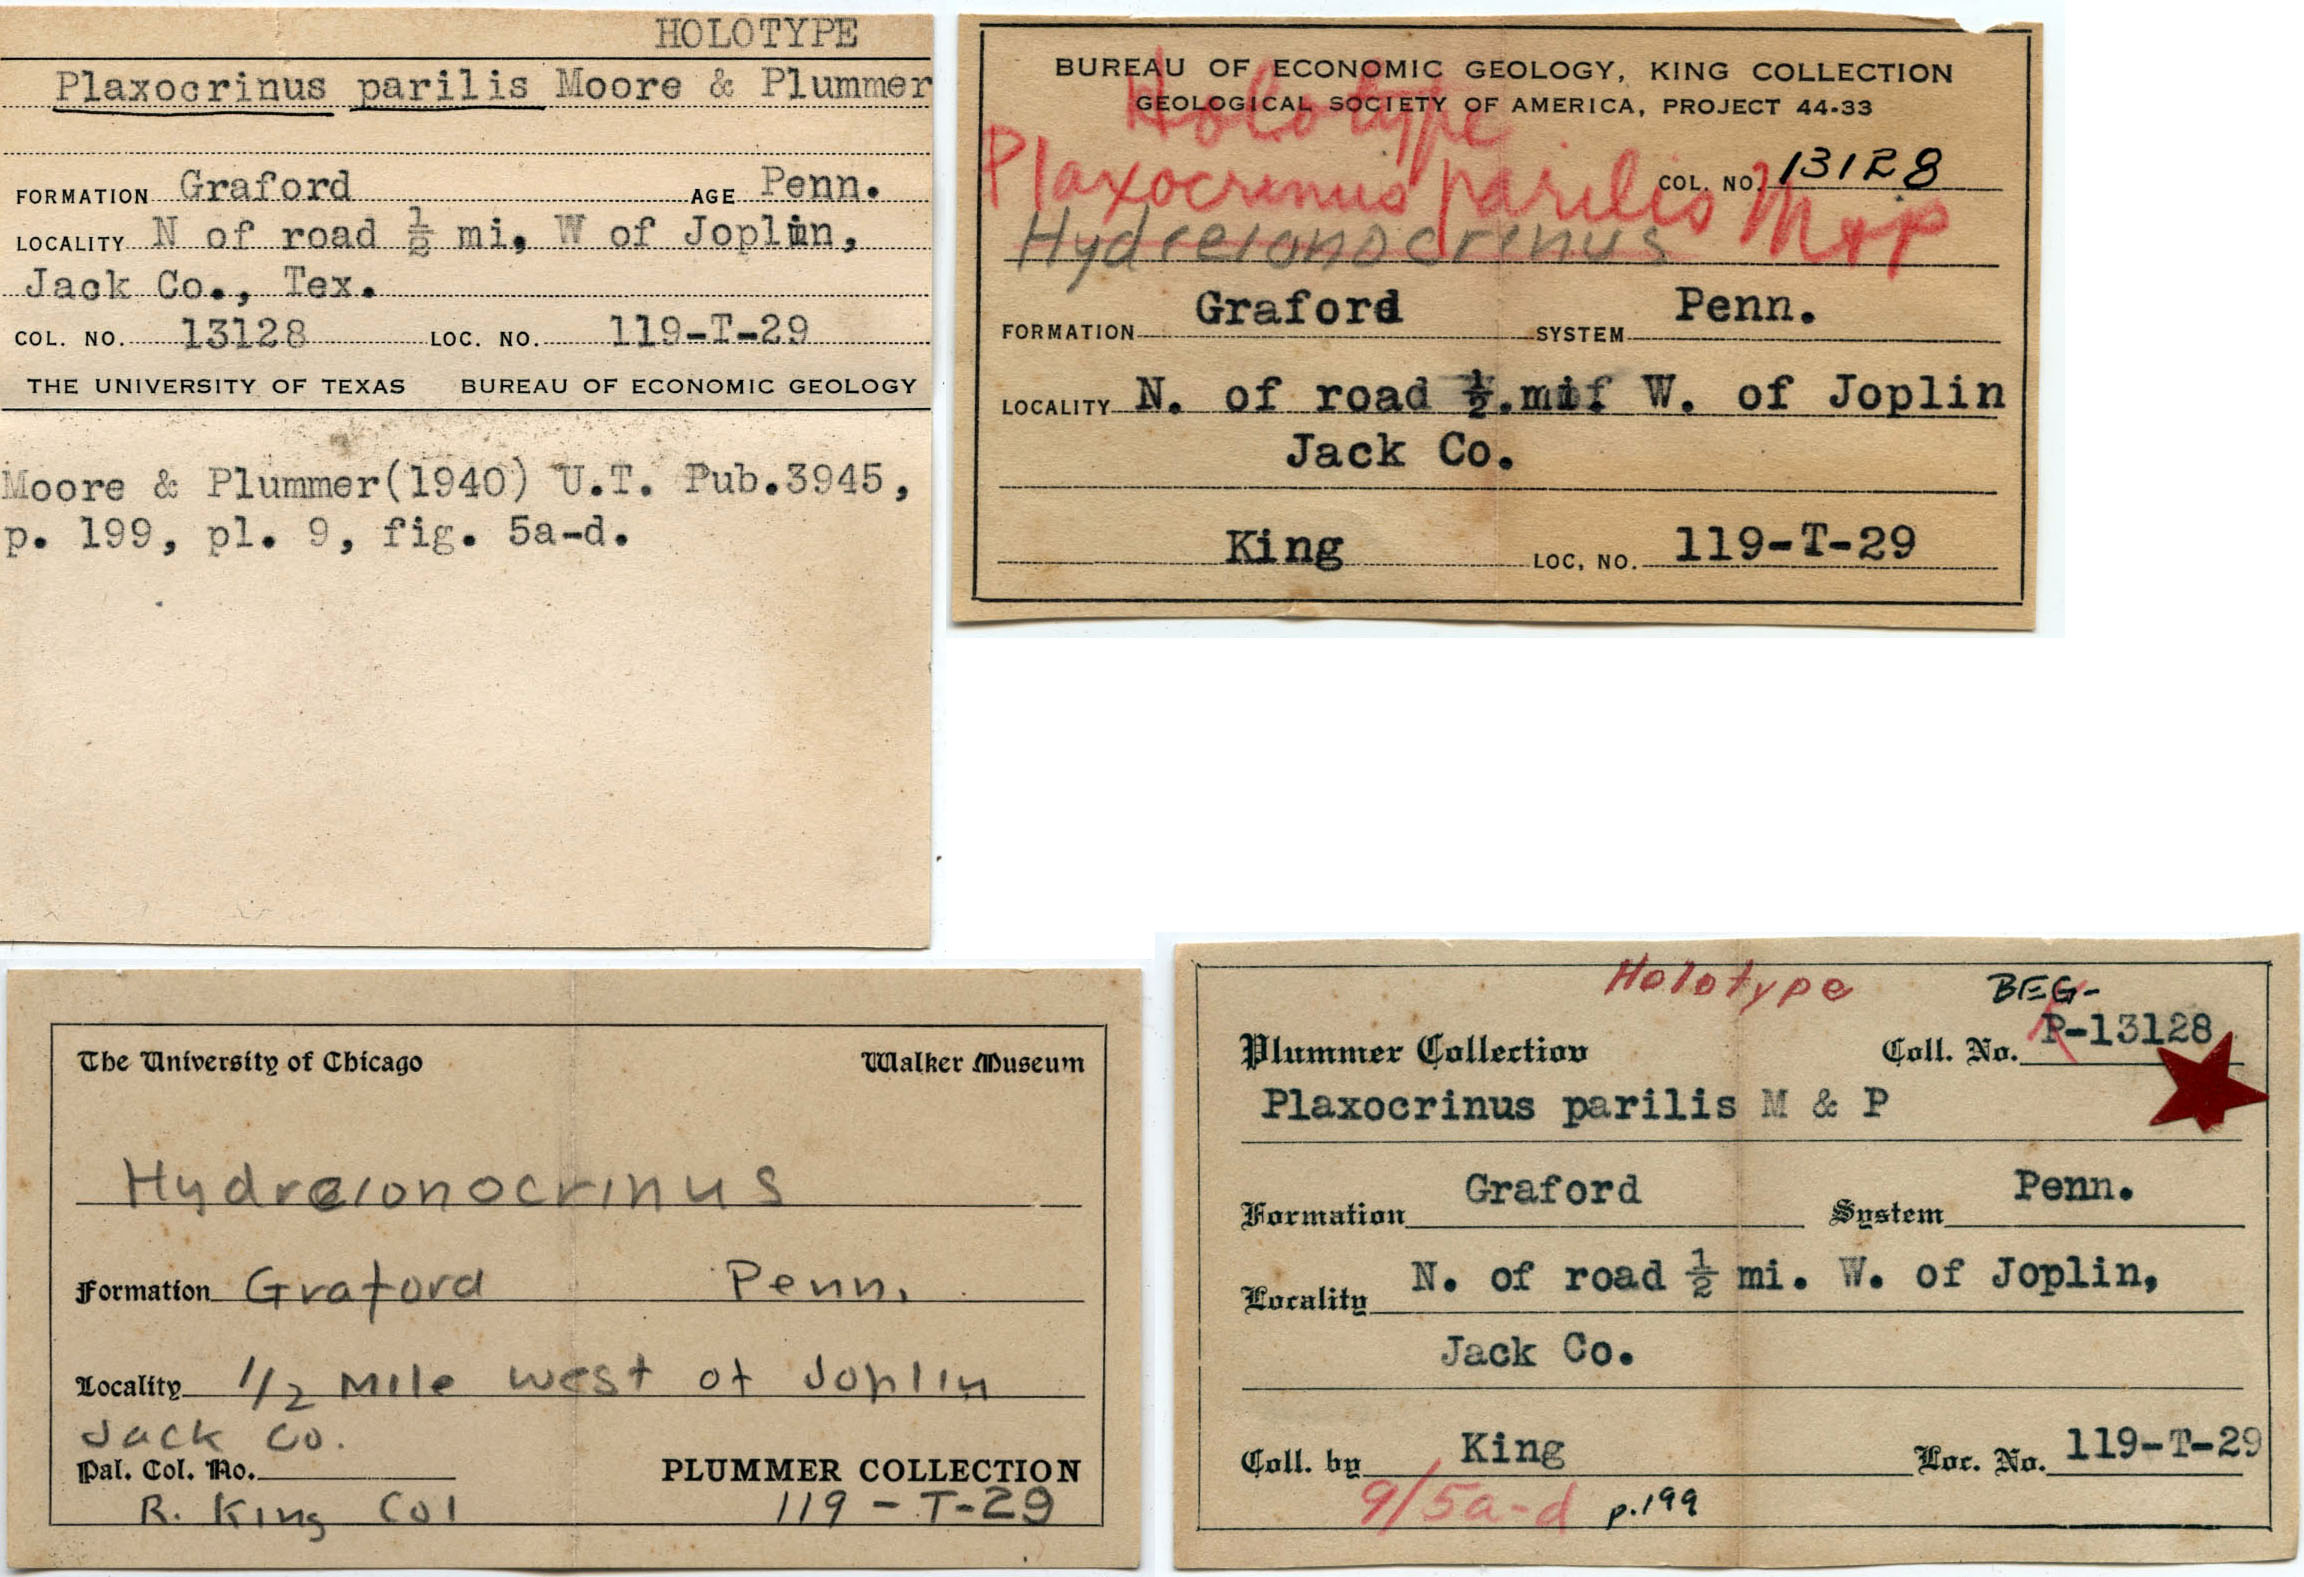 HOLOTYPE
Plaxocrinus parilis Moore & Plummer
FORMATION Graford AGE Penn.
LOCALITY N of road ½ mi, W of Joplin,
Jack Co., Tex.
COL. NO. 13128 LOC. NO. 119-T-29
THE UNIVERSITY OF TEXAS BUREAU OF ECONOMIC GEOLOGY
Moore & Plummer(1940) U.T. Pub.3945,
p. 199, pl. 9, fig. 5a-d.
BUREAU OF ECONOMIC GEOLOGY, KING COLLECTION
GEOLOGICAL SOCIETY OF AMERICA, PROJECT 44-33
Holotype
COL. NO. 13128
Plaxocrinus parilis M+P
Hydreionocrinus
FORMATION Graford SYSTEM Penn.
LOCALITY N. of road ½.mi. W. of Joplin
Jack Co.
King LOC. NO. 119-T-29
The University of Chicago Walker Museum
Hydreionocrinus
Formation Graford Penn.
Locality 1/2 Mile west of Joplin
Jack Co.
Pal. Col. No. PLUMMER COLLECTION
R. King Col 119-T-29
Holotype BEG-
Plummer Collection Coll. No. P-13128
Plaxocrinus parilis M & P
Formation Graford System Penn.
Locality N. of road ½ mi. W. of Joplin,
Jack Co.
Coll. by King Loc. No. 119-T-29
9/5a-d p.199